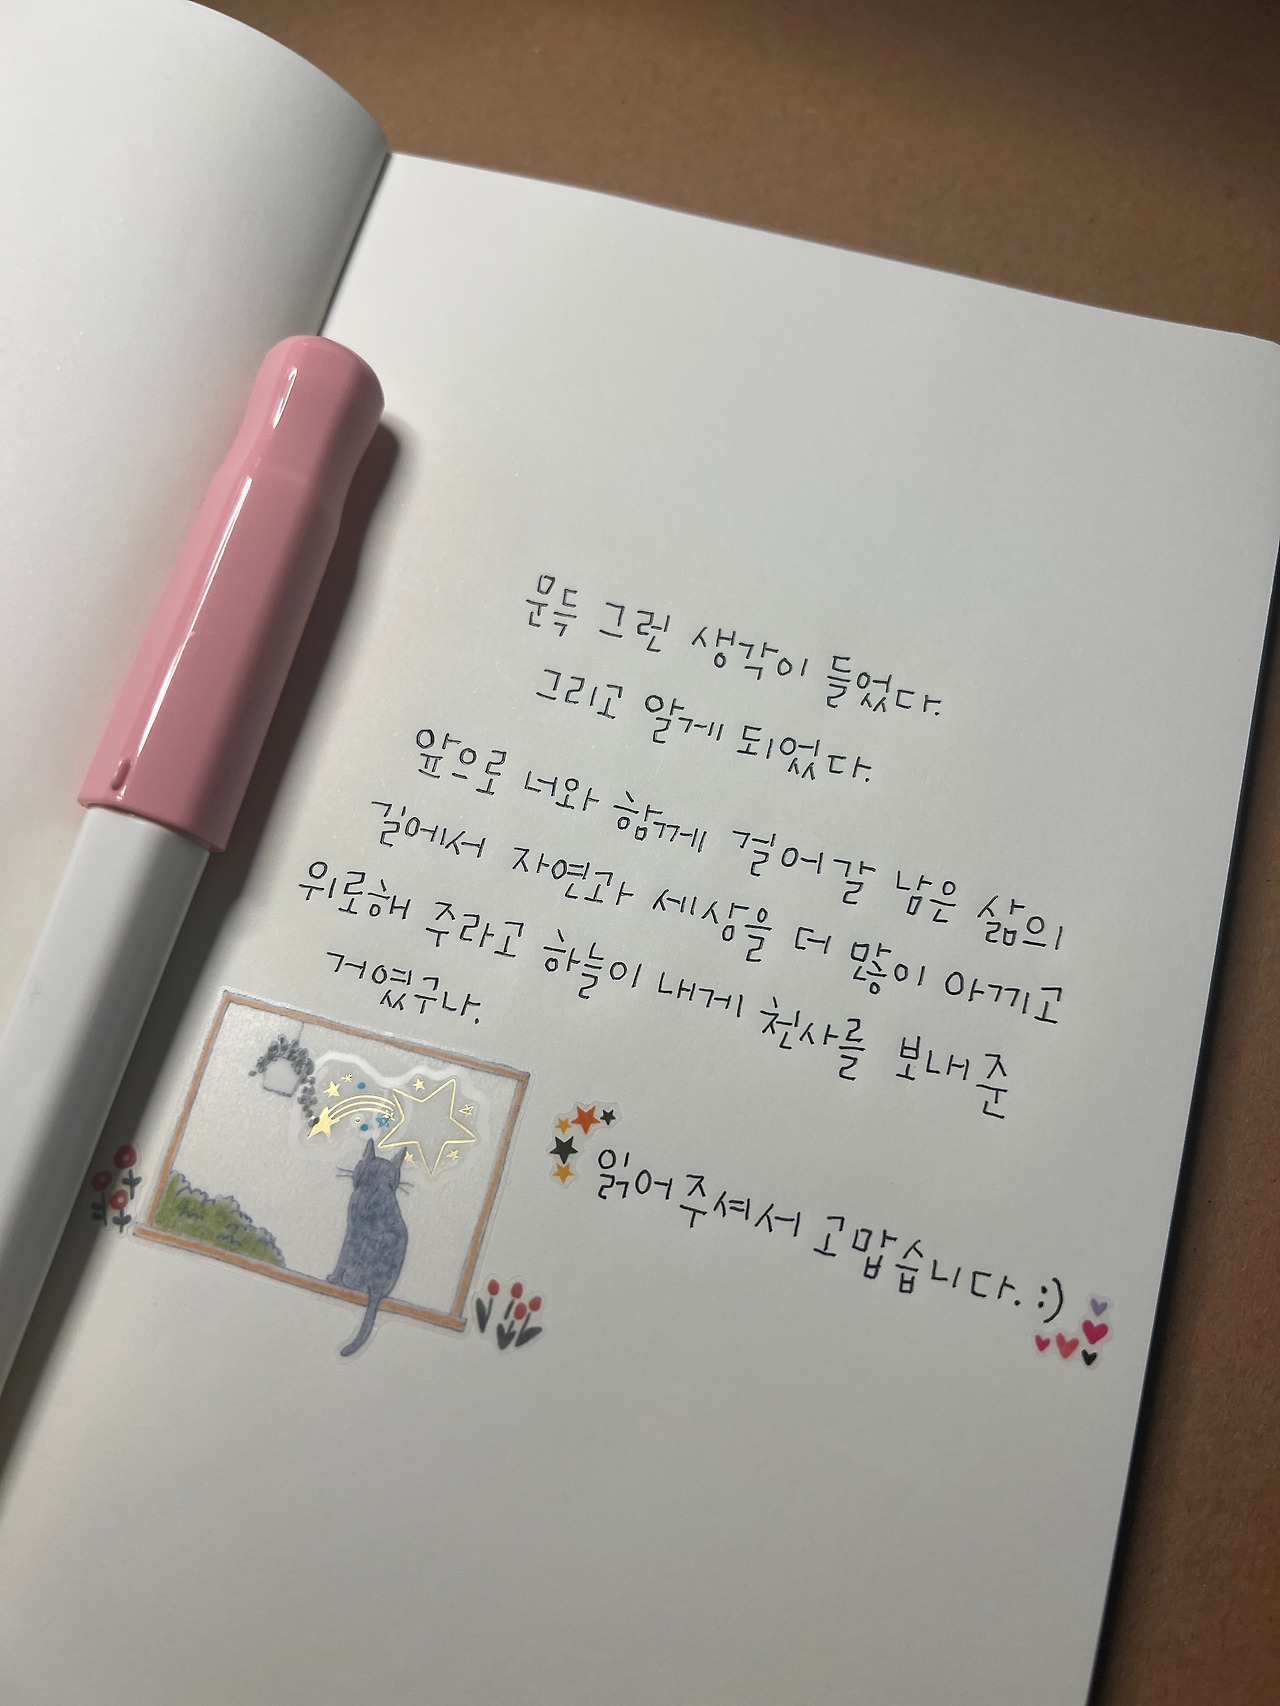 문득 그런 생각이 들었다.
그리고 알게 되었다.
앞으로 너와 함께 걸어갈 남은 삶의
길에서 자연과 세상을 더 많이 아끼고
위로해 주라고 하늘이 내게 천사를 보내준
거였구나.
읽어주셔서 고맙습니다. :)